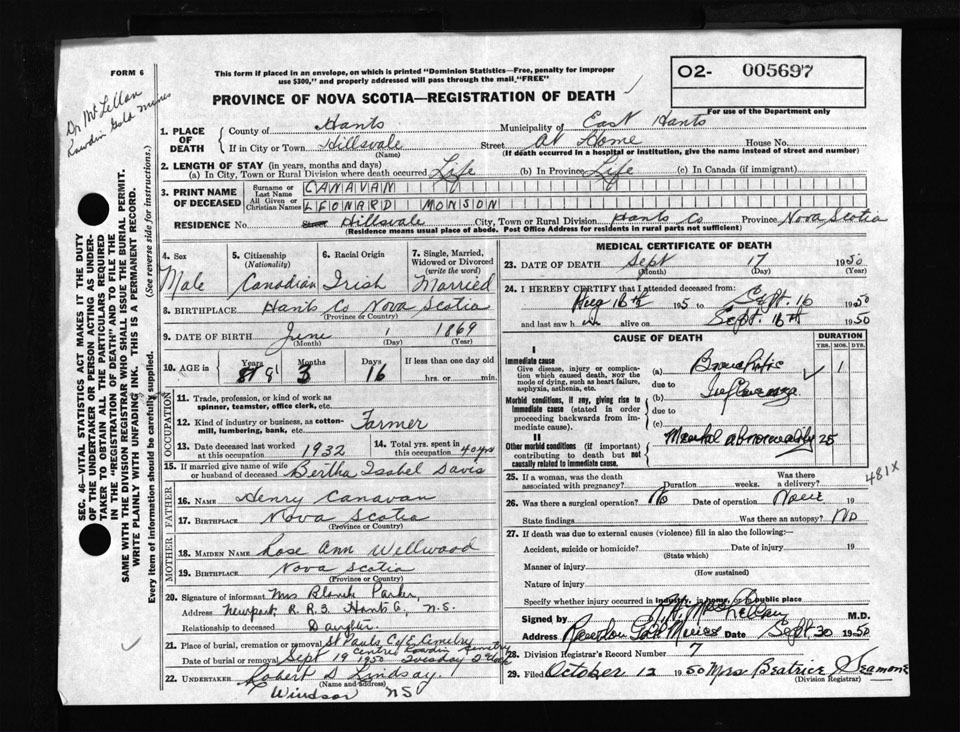 FORM 6
This form if placed in an envelope, on which is printed "Dominion Statistics—Free, penalty for improper
use $300," and properly addressed will pass through the mail "FREE"
02- 005697
For use of the Department only
Dr McLellan
Rawdin Gold Mines
PROVINCE OF NOVA SCOTIA—REGISTRATION OF DEATH
1. PLACE OF DEATH
County of Hants Municipality of East Hants
If in City or Town Hillsvale Street At Home House No.
(Name) (If death occurred in a hospital or institution, give the name instead of street and number)
2. LENGTH OF STAY (in years, months and days)
(a) In City, Town or Rural Division where death occurred Life (b) In Province Life (c) In Canada (if immigrant)
3. PRINT NAME OF DECEASED
Surname or Last Name CANAVAN
All Given or Christian Names LEONARD MONSON
RESIDENCE No. Street Hillsvale City, Town or Rural Division Hants Co Province Nova Scotia
(Residence means usual place of abode. Post Office Address for residents in rural parts not sufficient)
4. Sex Male
5. Citizenship (Nationality) Canadian
6. Racial Origin Irish
7. Single, Married, Widowed or Divorced (write the word) Married
8. BIRTHPLACE Hants Co Nova Scotia
(Province or Country)
9. DATE OF BIRTH June 1 1869
(Month) (Day) (Year)
10. AGE in Years 81 Months 3 Days 16 If less than one day old
hrs. or min.
OCCUPATION
11. Trade, profession, or kind of work as
spinner, teamster, office clerk, etc.
12. Kind of industry or business, as cotton-
mill, lumbering, bank, etc. Farmer
13. Date deceased last worked at this occupation 1932
14. Total yrs. spent in this occupation 40 yrs
15. If married give name of wife or husband of deceased Bertha Isabel Davis
FATHER
16. NAME Henry Canavan
17. BIRTHPLACE Nova Scotia
(Province or Country)
MOTHER
18. MAIDEN NAME Rose Ann Wellwood
19. BIRTHPLACE Nova Scotia
(Province or Country)
20. Signature of informant Mrs Blanch Parker,
Address Newport R.R.3 Hants Co, N.S.
Relationship to deceased Daughter.
21. Place of burial, cremation or removal St Pauls C of E Cemetry
Centre Rawdin Cemetry
Date of burial or removal Sept 19 1950 Tuesday
22. UNDERTAKER Robert D Lindsay.
(Name and address)
Windsor NS
MEDICAL CERTIFICATE OF DEATH
23. DATE OF DEATH Sept 17 1950
(Month) (Day) (Year)
24. I HEREBY CERTIFY that I attended deceased from:
Aug 16th 195 to Sept. 16 1950
and last saw h im alive on Sept. 16th 1950
CAUSE OF DEATH
DURATION
YRS. MOS. DYS.
I
Immediate cause
Give disease, injury or complication which caused death, NOT the mode of dying, such as heart failure, asphyxia, asthenia, etc.
(a) Bronchitis 1
due to
Morbid conditions, if any, giving rise to immediate cause (stated in order proceeding backwards from immediate cause).
(b) Influenza
due to
(c)
II
Other morbid conditions (if important) contributing to death but not causally related to immediate cause.
Mental abnormality 25
481X
25. If a woman, was the death associated with pregnancy? Duration weeks. Was there a delivery?
26. Was there a surgical operation? No Date of operation None 19
State findings Was there an autopsy? No
27. If death was due to external causes (violence) fill in also the following:—
Accident, suicide or homicide? Date of injury 19
(State which)
Manner of injury
(How sustained)
Nature of injury
Specify whether injury occurred in industry, in home, or public place
Signed by McLellan M.D.
Address Rawdon Gold Mines Date Sept 30 1950
28. Division Registrar's Record Number 7
29. Filed October 12 1950 Mrs Beatrice Seamone
(Division Registrar)
SEC. 46—VITAL STATISTICS ACT MAKES IT THE DUTY
OF THE UNDERTAKER OR PERSON ACTING AS UNDER-
TAKER TO OBTAIN ALL THE PARTICULARS REQUIRED
IN THE "REGISTRATION OF DEATH" AND TO FILE THE
SAME WITH THE DIVISION REGISTRAR WHO SHALL ISSUE THE BURIAL PERMIT.
WRITE PLAINLY WITH UNFADING INK. THIS IS A PERMANENT RECORD.
Every item of information should be carefully supplied. (See reverse side for instructions.)